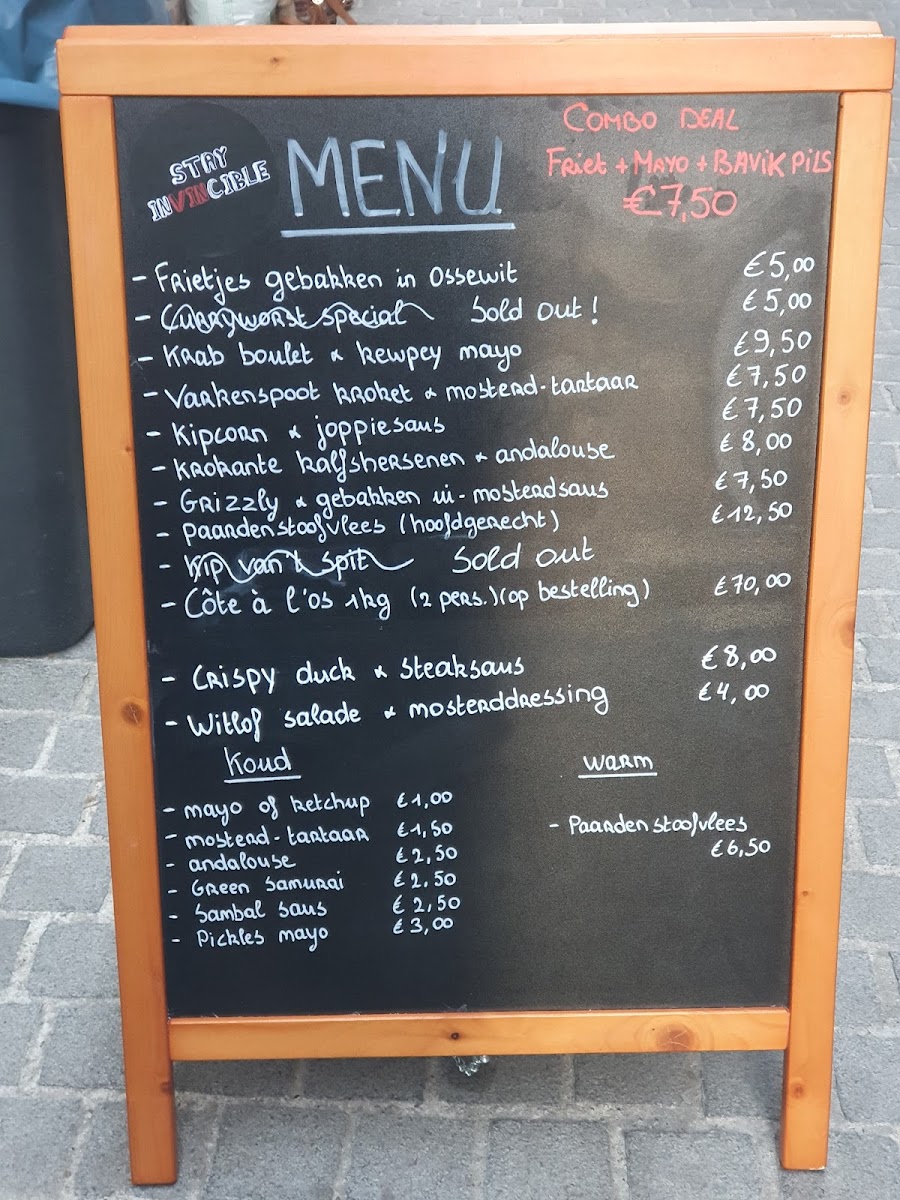 STAY
INVINCIBLE
MENU
COMBO DEAL
Friet + MAYO + BAVIK PILS
€7,50
- Frietjes gebakken in ossewit €5,00
- Curryworst special Sold out! €5,00
- Krab boulet & kewpey mayo €9,50
- Varkenspoot kroket & mosterd-tartaar €7,50
- Kipcorn & joppiesaus €7,50
- Krokante kalfshersenen & andalouse €8,00
- Grizzly & gebakken ui-mosterdsaus €7,50
- Paardenstoofvlees (hoofdgerecht) €12,50
- Kip van 't spit Sold out
- Côte à l'os 1kg (2 pers.)(op bestelling) €70,00
- Crispy duck & steaksaus €8,00
- Witlof salade & mosterddressing €4,00
Koud
- mayo of ketchup €1,00
- mosterd-tartaar €1,50
- andalouse €2,50
- Green Samurai €2,50
- Sambal saus €2,50
- Pickles mayo €3,00
Warm
- Paardenstoofvlees
€6,50